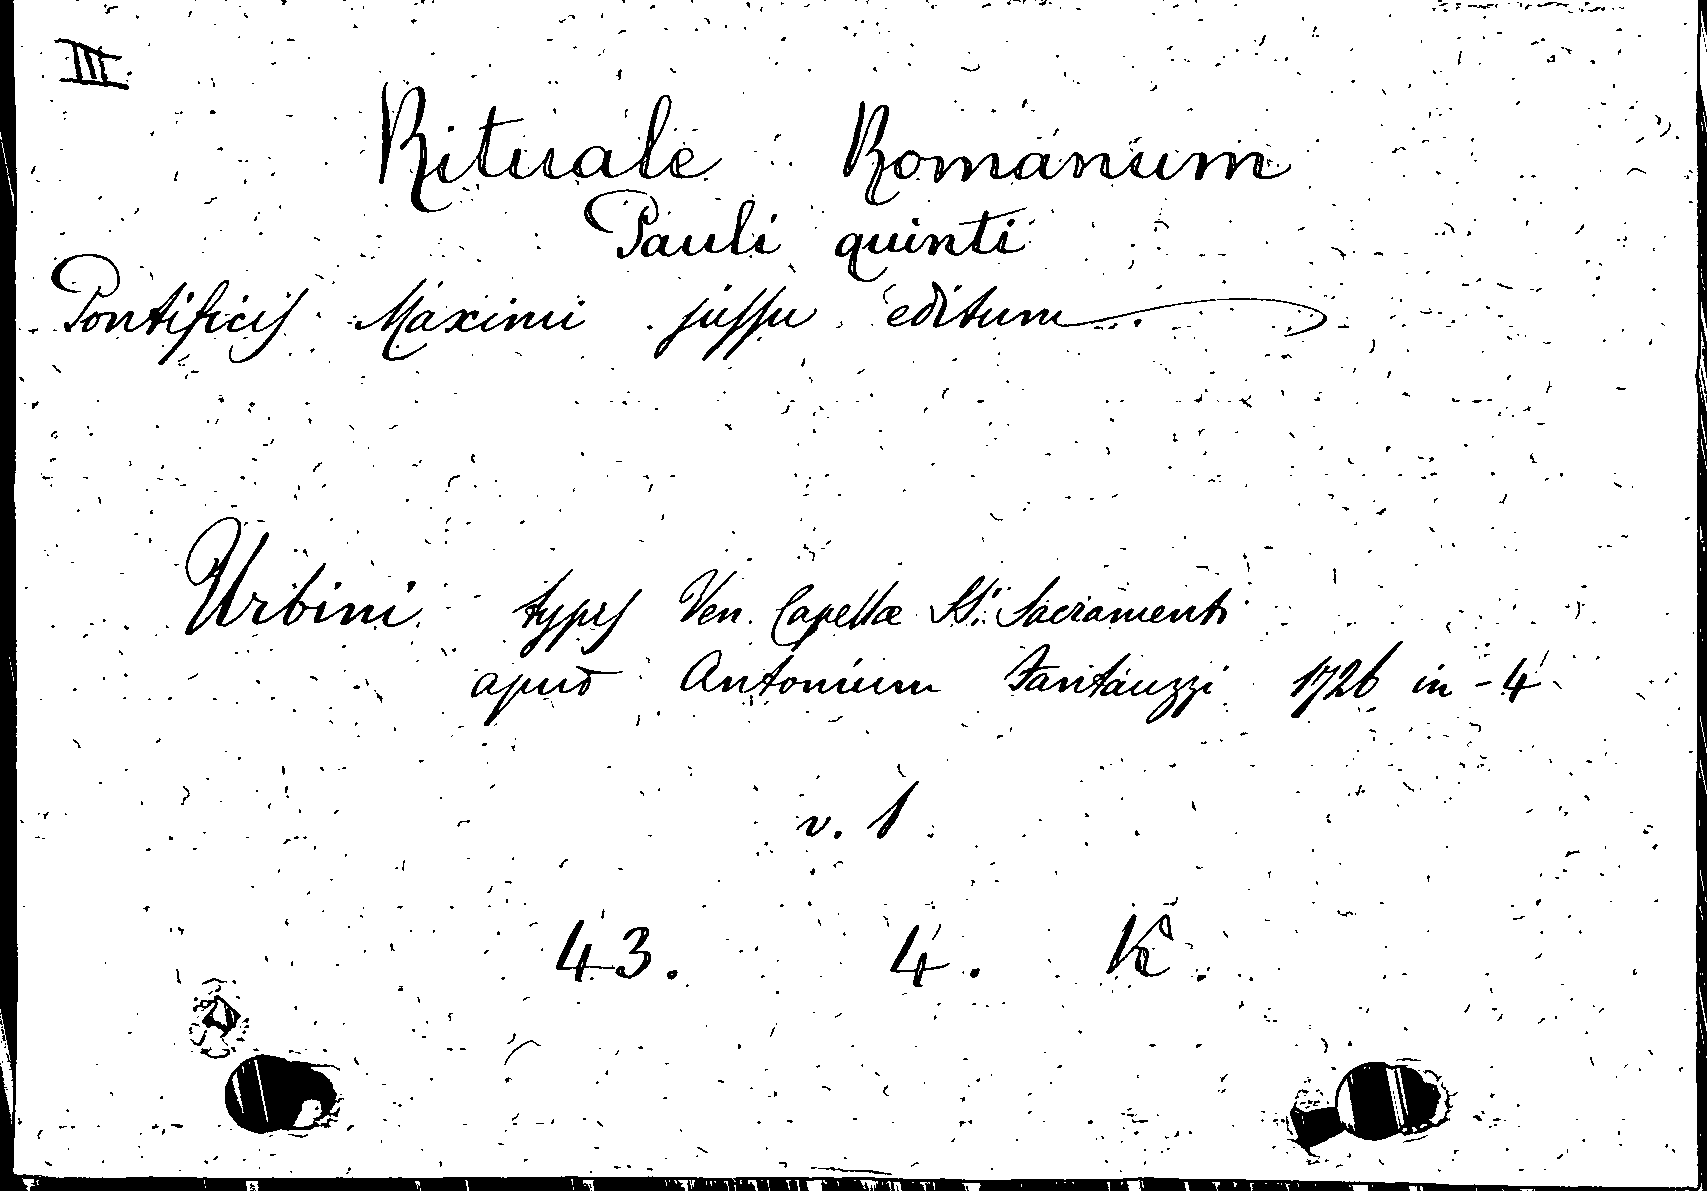 III
Rituale Romanum
Pauli quinti
Pontificis Maximi jussu editum
Urbini typis Ven. Capellæ SS. Sacramenti
apud Antonium Fantauzzi 1726 in-4
v. 1
43. 4. K.